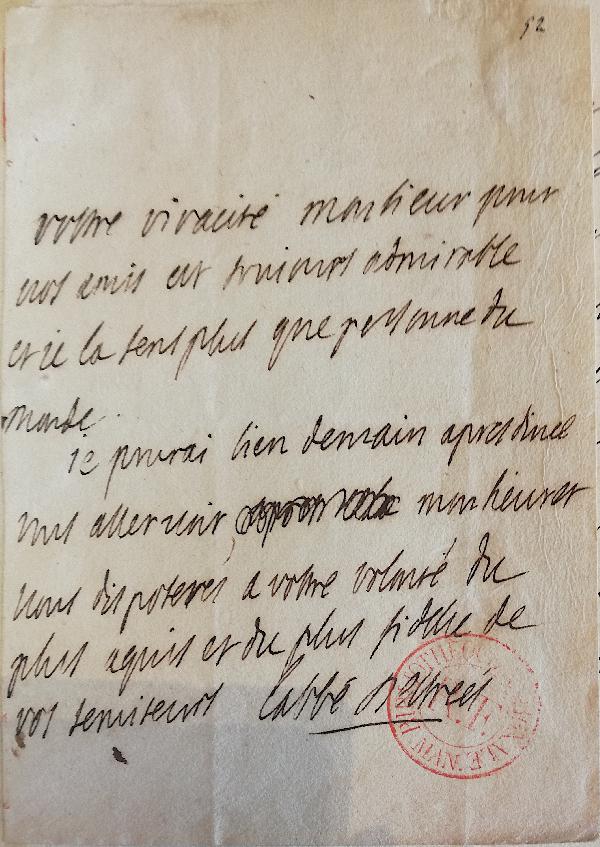 52
vostre vivacité monsieur pour
vos amis est toujours admirable
et ie la sens plus que personne du
monde
ie pourai bien demain apres dinee
vous aller voir monsieur et
vous disposeres a vostre volonté du
plus aquis et du plus fidelle de
vos serviteurs l'abbé d'estrées